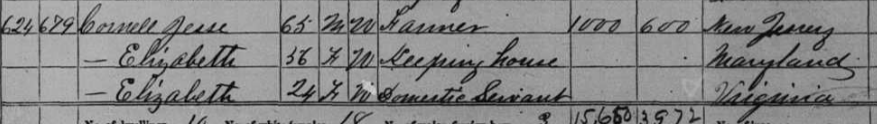 624 679 Cornell Jesse 65 M W Farmer 1000 600 New Jersey
— Elizabeth 56 F W Keeping house Maryland
— Elizabeth 24 F W Domestic Servant Virginia
15,650 3972